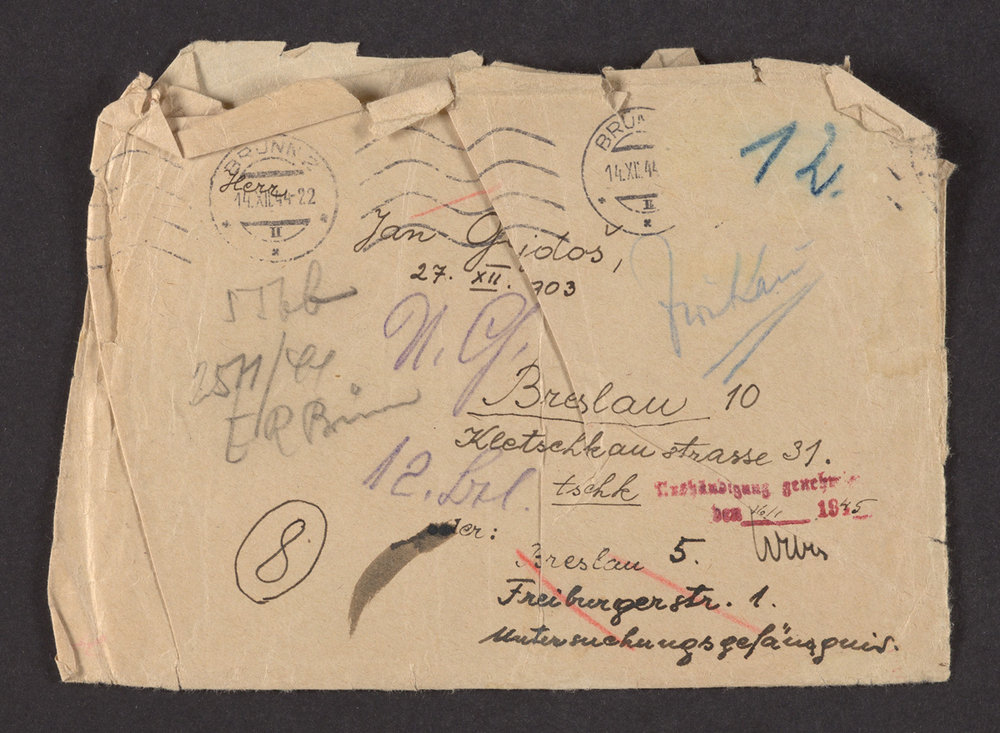 BRÜNN 2
14.XII.44-22
II
BRÜN
14.XII.44
II
12.
Herrn
Jan Gajdoš,
27. XII. 903
25 11/44
Brünn
N. G.
Breslau 10
Kletschkau strasse 31.
tschk
12. Bsl.
Aushändigung geneh
den 16/I 1945
8
oder:
Breslau 5.
Freiburgerstr. 1.
Untersuchungsgefängnis.